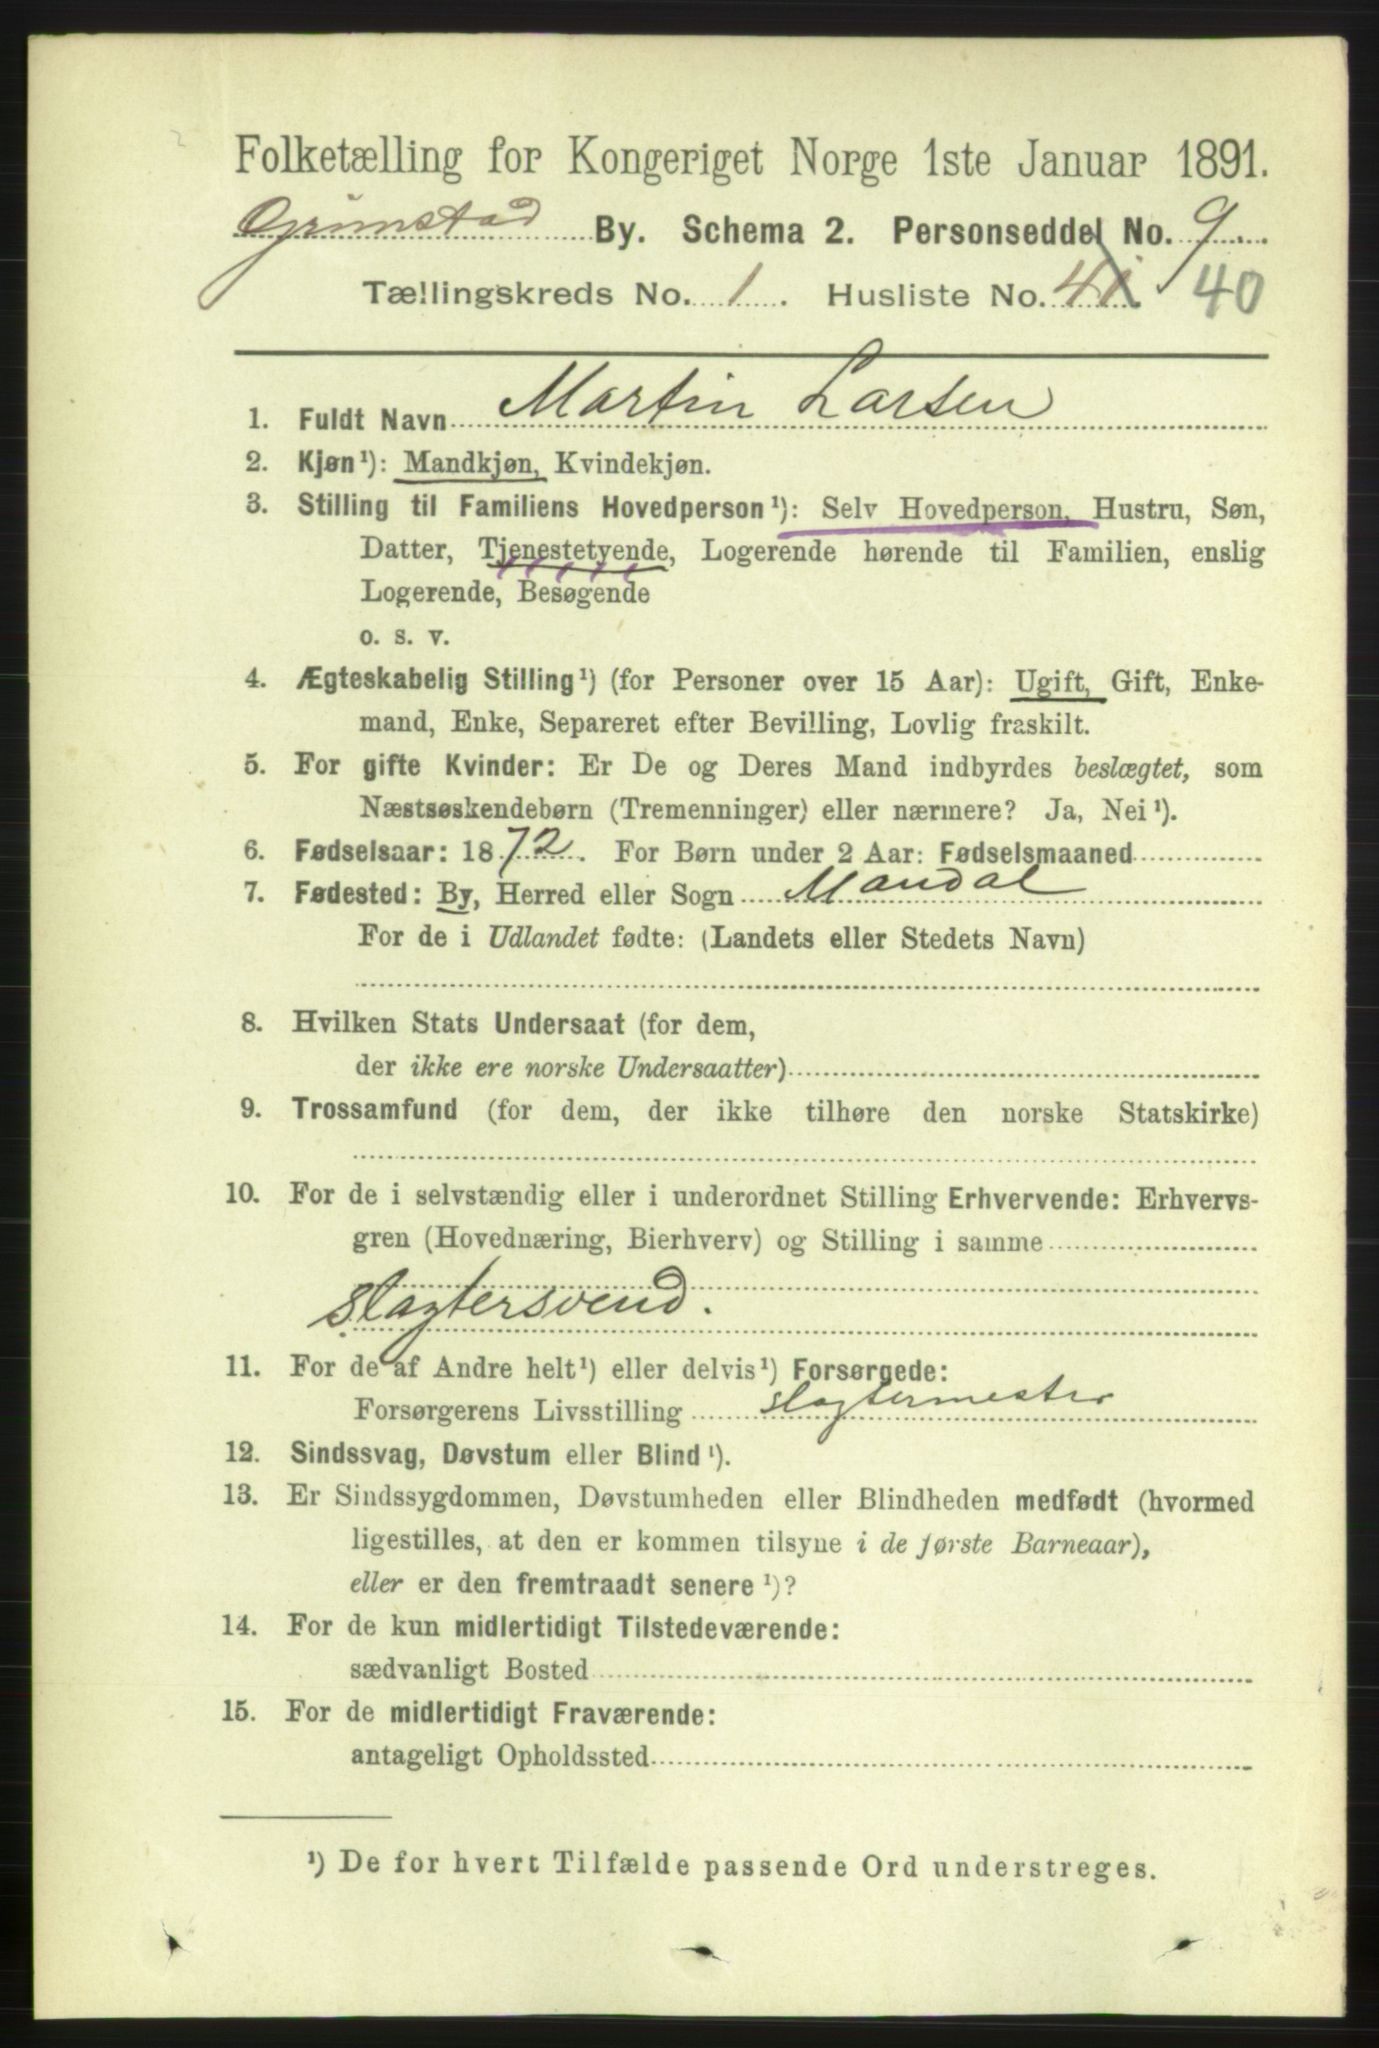 Folketælling for Kongeriget Norge 1ste Januar 1891.
Grimstad By. Schema 2. Personseddel No. 9
Tællingskreds No. 1. Husliste No. 41 40
1. Fuldt Navn Martin Larsen
2. Kjøn¹): Mandkjøn, Kvindekjøn.
3. Stilling til Familiens Hovedperson¹): Selv Hovedperson, Hustru, Søn,
Datter, Tjenestetyende, Logerende hørende til Familien, enslig
Logerende, Besøgende
o. s. v.
4. Ægteskabelig Stilling¹) (for Personer over 15 Aar): Ugift, Gift, Enke-
mand, Enke, Separeret efter Bevilling, Lovlig fraskilt.
5. For gifte Kvinder: Er De og Deres Mand indbyrdes beslægtet, som
Næstsøskendebørn (Tremenninger) eller nærmere? Ja, Nei¹).
6. Fødselsaar: 1872. For Børn under 2 Aar: Fødselsmaaned
7. Fødested: By, Herred eller Sogn Mandal
For de i Udlandet fødte: (Landets eller Stedets Navn)
8. Hvilken Stats Undersaat (for dem,
der ikke ere norske Undersaatter)
9. Trossamfund (for dem, der ikke tilhøre den norske Statskirke)
10. For de i selvstændig eller i underordnet Stilling Erhvervende: Erhvervs-
gren (Hovednæring, Bierhverv) og Stilling i samme
slagtersvend.
11. For de af Andre helt¹) eller delvis¹) Forsørgede:
Forsørgerens Livsstilling slagtermester
12. Sindssvag, Døvstum eller Blind¹).
13. Er Sindssygdommen, Døvstumheden eller Blindheden medfødt (hvormed
ligestilles, at den er kommen tilsyne i de første Barneaar),
eller er den fremtraadt senere¹)?
14. For de kun midlertidigt Tilstedeværende:
sædvanligt Bosted
15. For de midlertidigt Fraværende:
antageligt Opholdssted
¹) De for hvert Tilfælde passende Ord understreges.